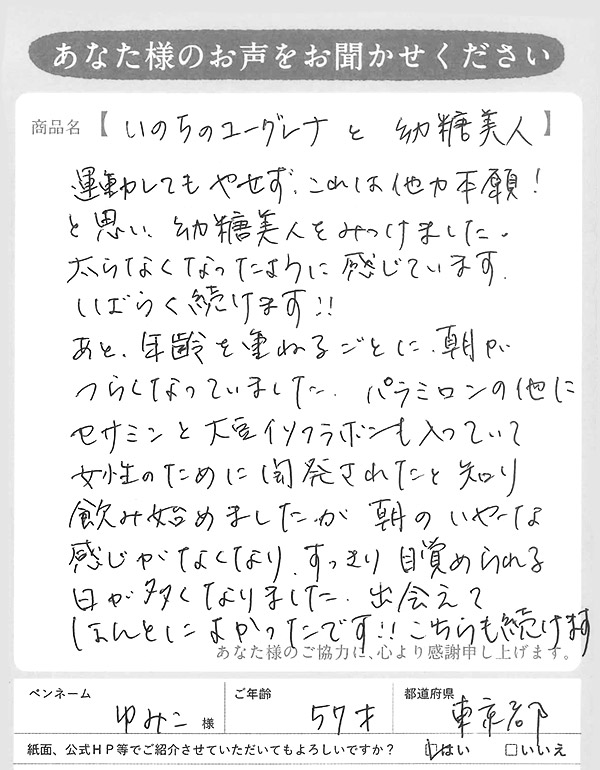 あなた様のお声をお聞かせください
商品名【いのちのユーグレナと 幼糖美人】
運動してもやせず、これは他力本願!
と思い、幼糖美人をみつけました。
太らなくなったように感じています。
しばらく続けます!!
あと、年齢を重ねるごとに、朝が
つらくなっていました。パラミロンの他に
セサミンと大豆イソフラボンも入っていて
女性のために開発されたと知り
飲み始めましたが 朝のいやーな
感じがなくなり、すっきり目覚められる
日が多くなりました。出会えて
ほんとによかったです!!こちらも続けます
あなた様のご協力に、心より感謝申し上げます。
ペンネーム ご年齢 都道府県
ゆみこ 様 57才 東京都
紙面、公式HP等でご紹介させていただいてもよろしいですか? ☑はい □いいえ